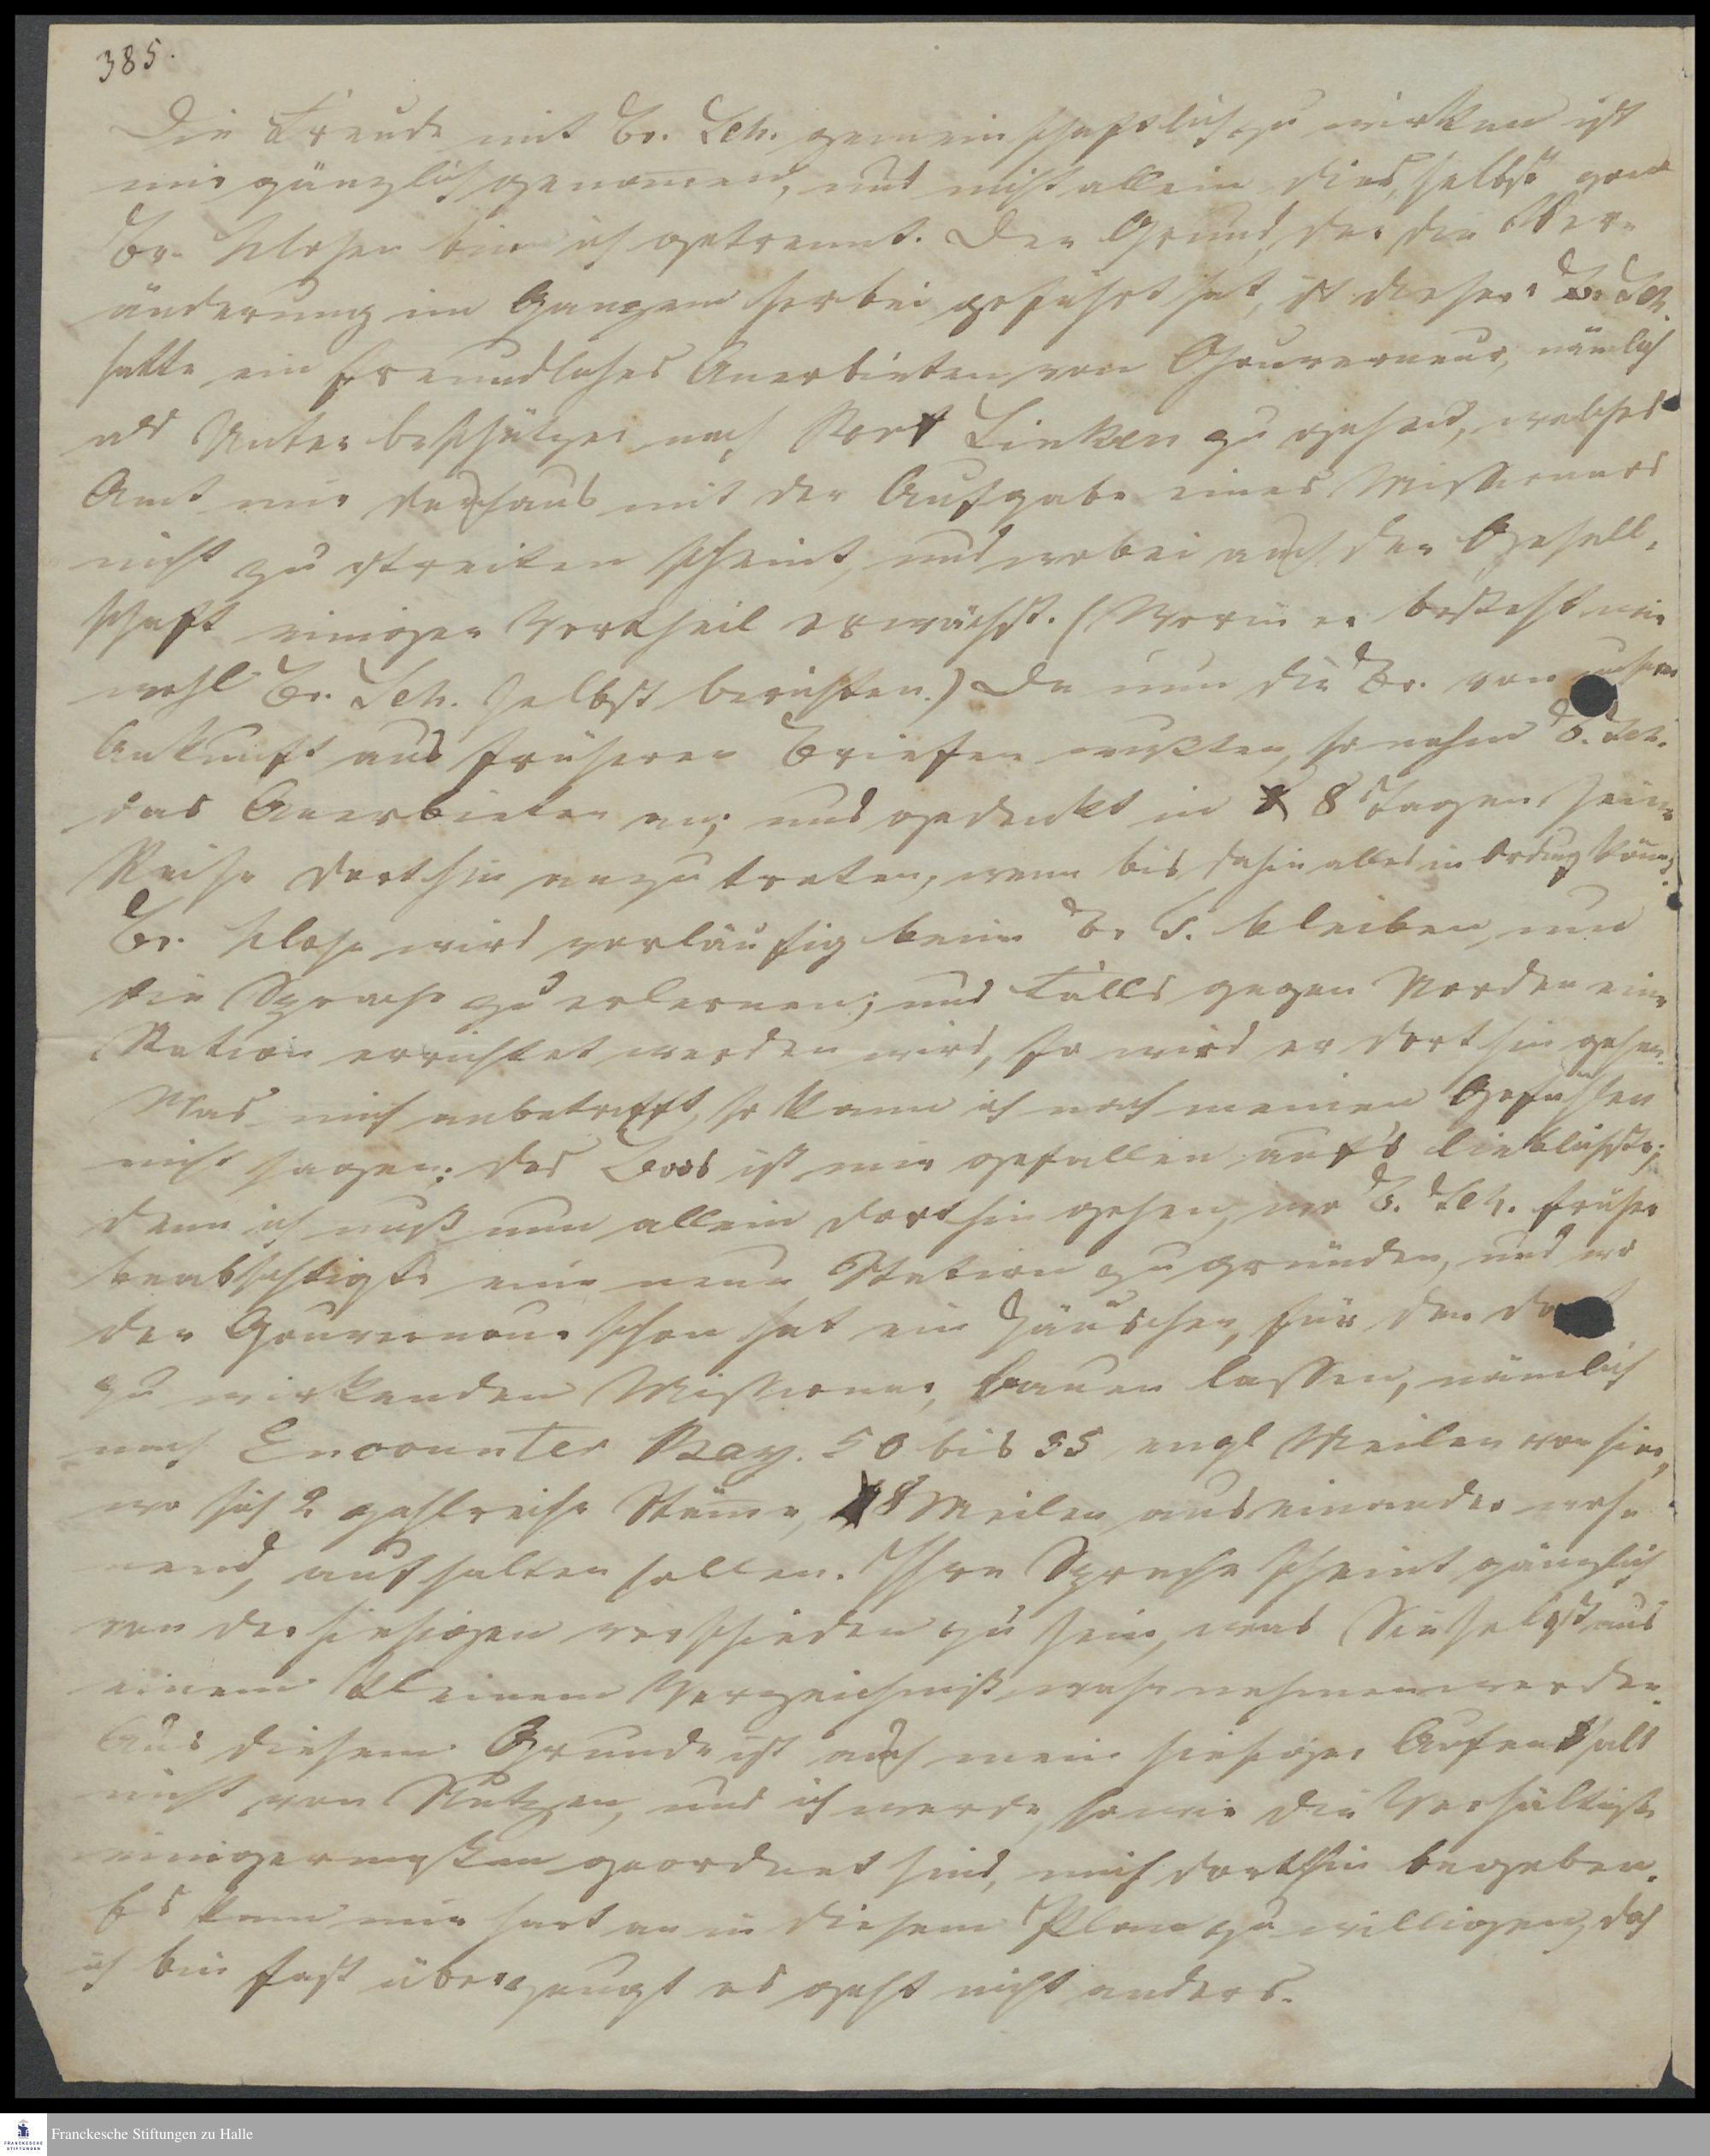 385.
Die Freude mit Br. Sch. gemeinschaftlich zu wirken ist
mir gänzlich genommen, und nicht allein dies, selbst von
Br. Klosen bin ich getrennt. Der Grund, der die Ver-
änderung im Ganzen herbei geführt hat, ist dieser: B. Sch.
hatte ein freundliches Anerbieten vom Gouverneur, nämlich
als Unterbeschützer nach Port Linken zu gehen, welches
Amt mir durchaus mit der Aufgabe eines Missionars
nicht zu streiten scheint, und wobei auch der Gesell-
schaft einiger Vortheil erwächst. (Worin er besteht wird
wohl Br. Sch. selbst berichten.) Da nun die Br. von unserer
Ankunft aus früheren Briefen wußten, so nahm B. Sch.
das Anerbieten an; und gedenkt in 8 Tagen seine
Reise dorthin anzutreten, wenn bis dahin alles in Ordnug kömt.
Br. Klose wird vorläufig beim Br. T. bleiben, um
die Sprache zu erlernen; und falls gegen Norden eine
Station errichtet werden wird, so wird er dorthin gehen.
Was mich anbetrifft, so kann ich nach meinen Gefühlen
nicht sagen: das Loos ist mir gefallen auf's lieblichste;
denn ich muß nun allein dorthin gehen, wo B. Sch. früher
beabsichtigte eine neue Station zu gründen, und wo
der Gouverneur schon hat ein Häuschen, für den dort
zu wirkenden Missionar, bauen lassen, nämlich
nach Encounter Bay. 50 bis 55 engl Meilen von hier,
wo sich 2 zahlreiche Stäme, 8 Meilen auseinander woh-
nend, aufhalten sollen. Ihre Sprache scheint gänzlich
von der hiesigen verschieden zu sein, was Sie selbst aus
einem kleinem Verzeichniß wahrnehmen werden.
Aus diesem Grunde ist auch mein hiesiger Aufenthalt
nicht von Nutzen, und ich werde, sowie die Verhältniße
einigermaßen geordnet sind, mich dorthin begeben.
Es kam mir hart an in diesem Plan zu willigen, doch
ich bin fast überzeugt es geht nicht anders.
Franckesche Stiftungen zu Halle
FRANCKESCHE
STIFTUNGEN